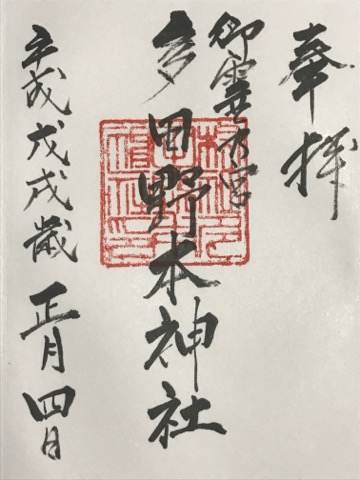 奉拝
御霊宮
多田野本神社
平成戊戌歳正月四日